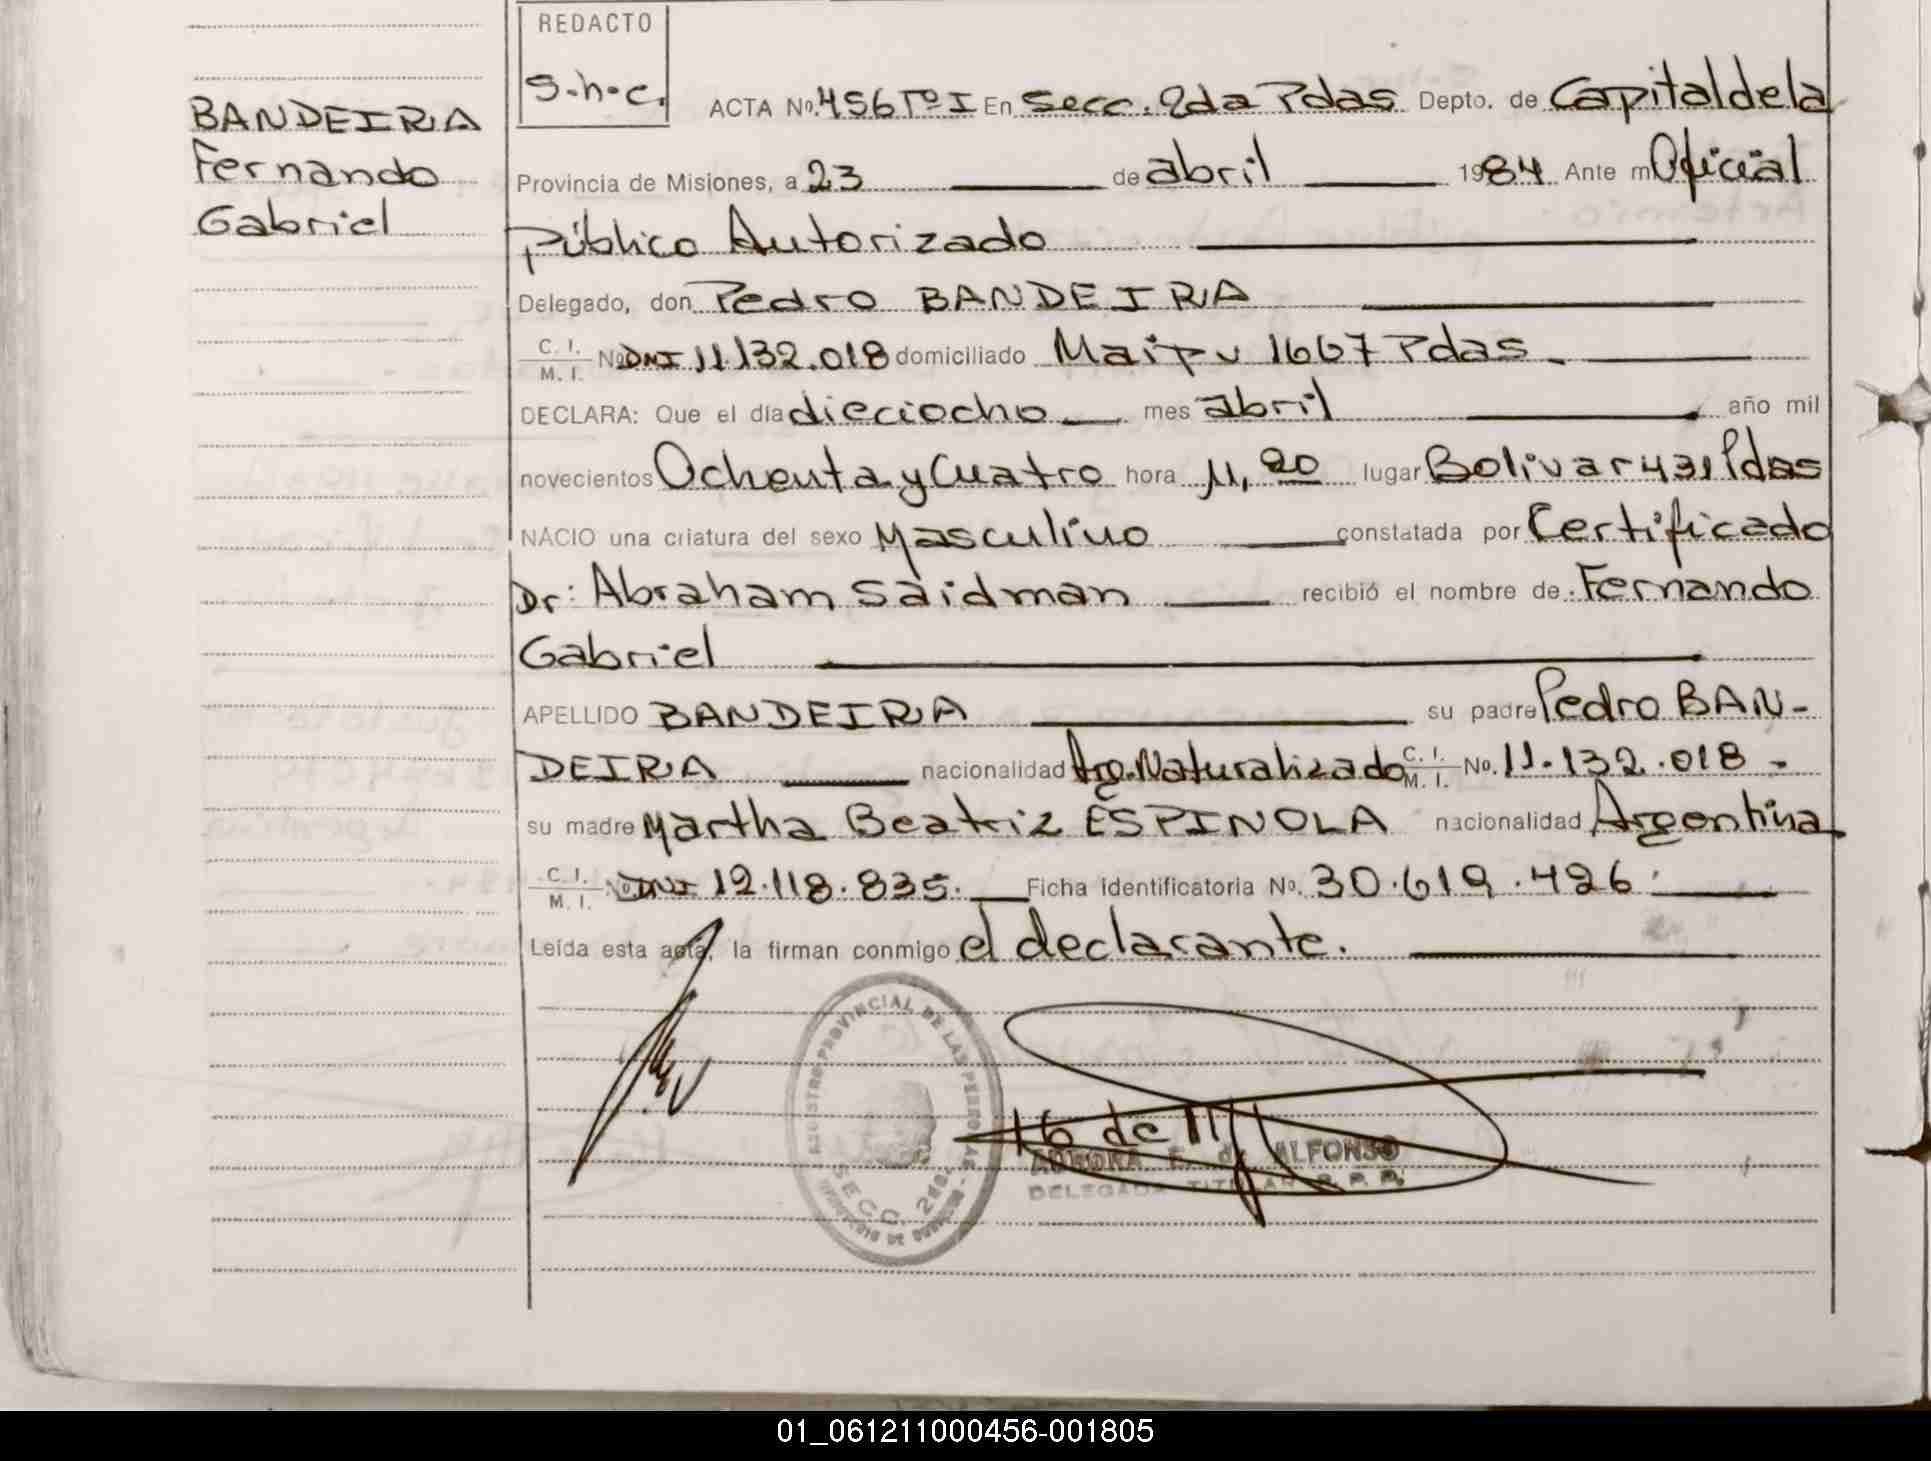 REDACTO
S.h.c.
BANDEIRA
Fernando
Gabriel
ACTA Nº. 456 Tº I En Secc. 2da Pdas Depto. de Capital de la
Provincia de Misiones, a 23 de abril 1984 Ante mí Oficial
Público Autorizado
Delegado, don Pedro BANDEIRA
C. I. M. I. Nº DNI 11.132.018 domiciliado Maipu 1667 Pdas.
DECLARA: Que el día dieciocho mes abril año mil
novecientos Ochenta y Cuatro hora 11,20 lugar Bolivar 431 Pdas
NACIO una criatura del sexo Masculino constatada por Certificado
Dr: Abraham Saidman recibió el nombre de Fernando
Gabriel
APELLIDO BANDEIRA su padre Pedro BAN-
DEIRA nacionalidad Arg. Naturalizado C. I. M. I. Nº. 11.132.018 -
su madre Martha Beatriz ESPINOLA nacionalidad Argentina
C. I. M. I. Nº DNI 12.118.835. Ficha Identificatoria Nº. 30.619.426.
Leída esta acta, la firman conmigo el declarante.
REGISTRO PROVINCIAL DE LAS PERSONAS
SECC. 2da.
AURORA E. de ALFONSO
DELEGADA TITULAR R. P. P.
01_061211000456-001805